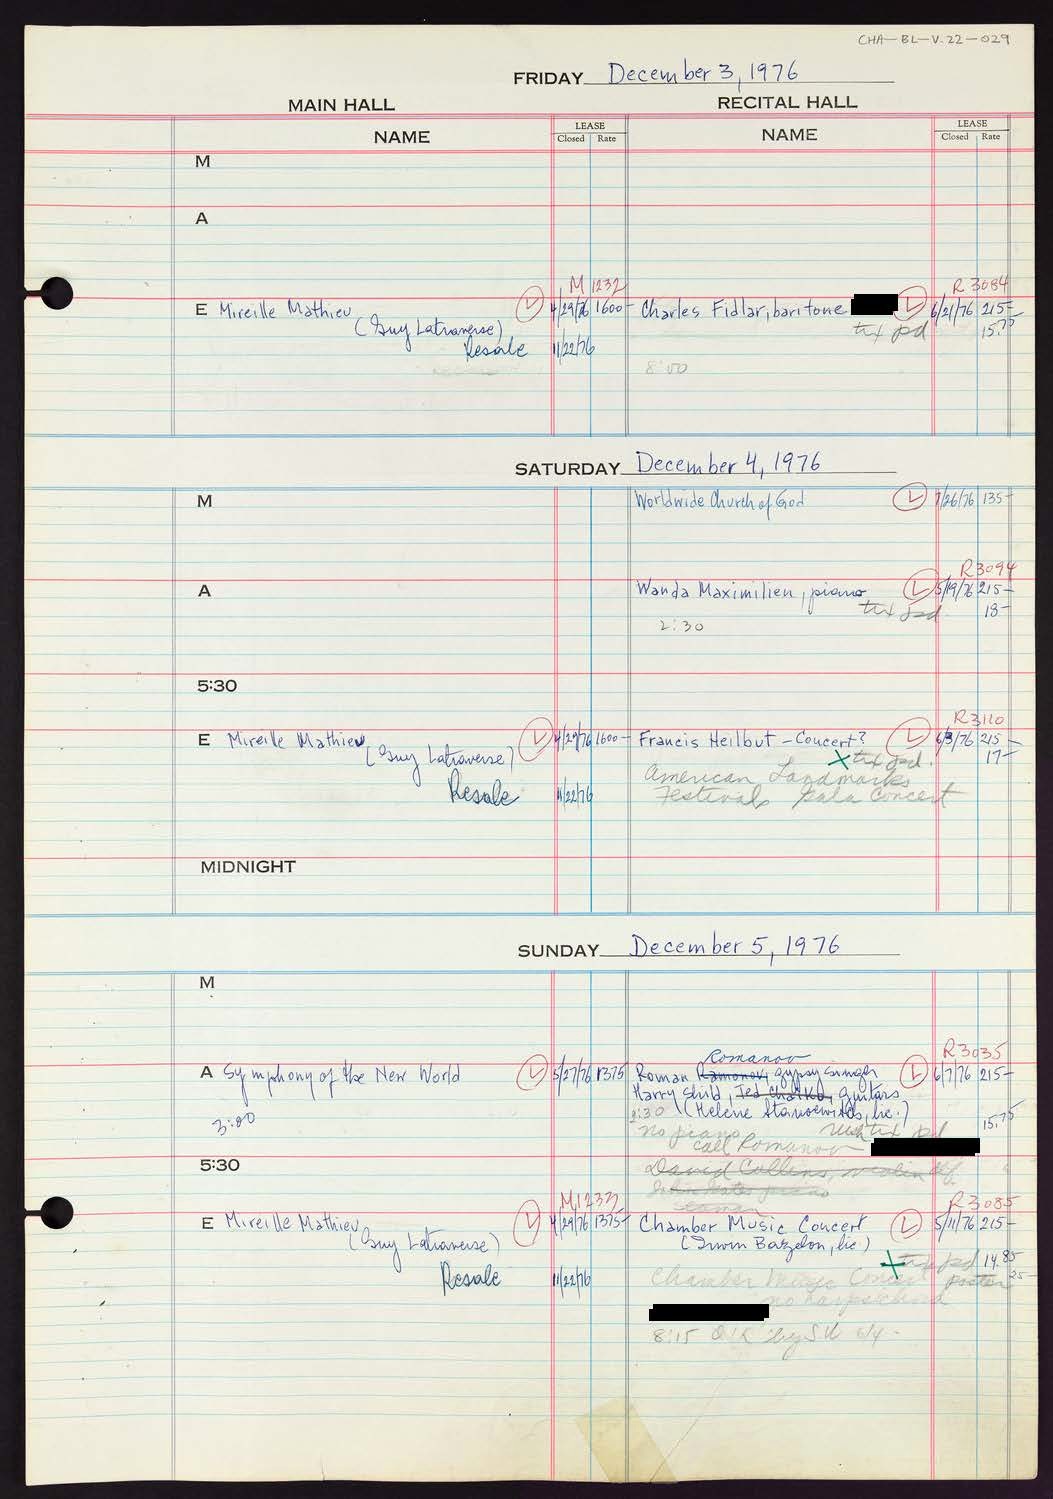 CHA-BL-V.22-029
FRIDAY December 3, 1976
MAIN HALL RECITAL HALL
NAME LEASE Closed Rate NAME LEASE Closed Rate
M
A
M 1232 R 3084
E Mireille Mathieu L 4/29/76 1600- Charles Fidlar, baritone L 6/21/76 215-
(Guy Latraverse) tix pd 15.75
Resale 11/22/76
8:00
SATURDAY December 4, 1976
M Worldwide Church of God L 7/26/76 135-
R3094
A Wanda Maximilien, piano L 5/19/76 215-
tix pd 18-
2:30
5:30
R3110
E Mireille Mathieu L 4/29/76 1600- Francis Heilbut - Concert? L 6/3/76 215-
(Guy Latraverse) X tix pd. 17-
American Landmarks
Resale 11/22/76 Festival Gala Concert
MIDNIGHT
SUNDAY December 5, 1976
M
Romanov R3035
A Symphony of the New World L 5/27/76 1375 Roman Ramonov, gypsy singer L 6/7/76 215-
Harry Shild, Ted, guitars
3:00 2:30 (Helene Inc.) 15.75
no piano tix pd
call Romanov
5:30 David Collins, violin
M1233 R3085
E Mireille Mathieu L 4/29/76 1375- Chamber Music Concert L 5/11/76 215-
(Guy Latraverse) (Irwin Bazelon, lic)
X tix pd 14.85
Resale 11/22/76 Chamber Music Concert poster 25-
no harpsichord
8:15 O.K. by SW 6/4-